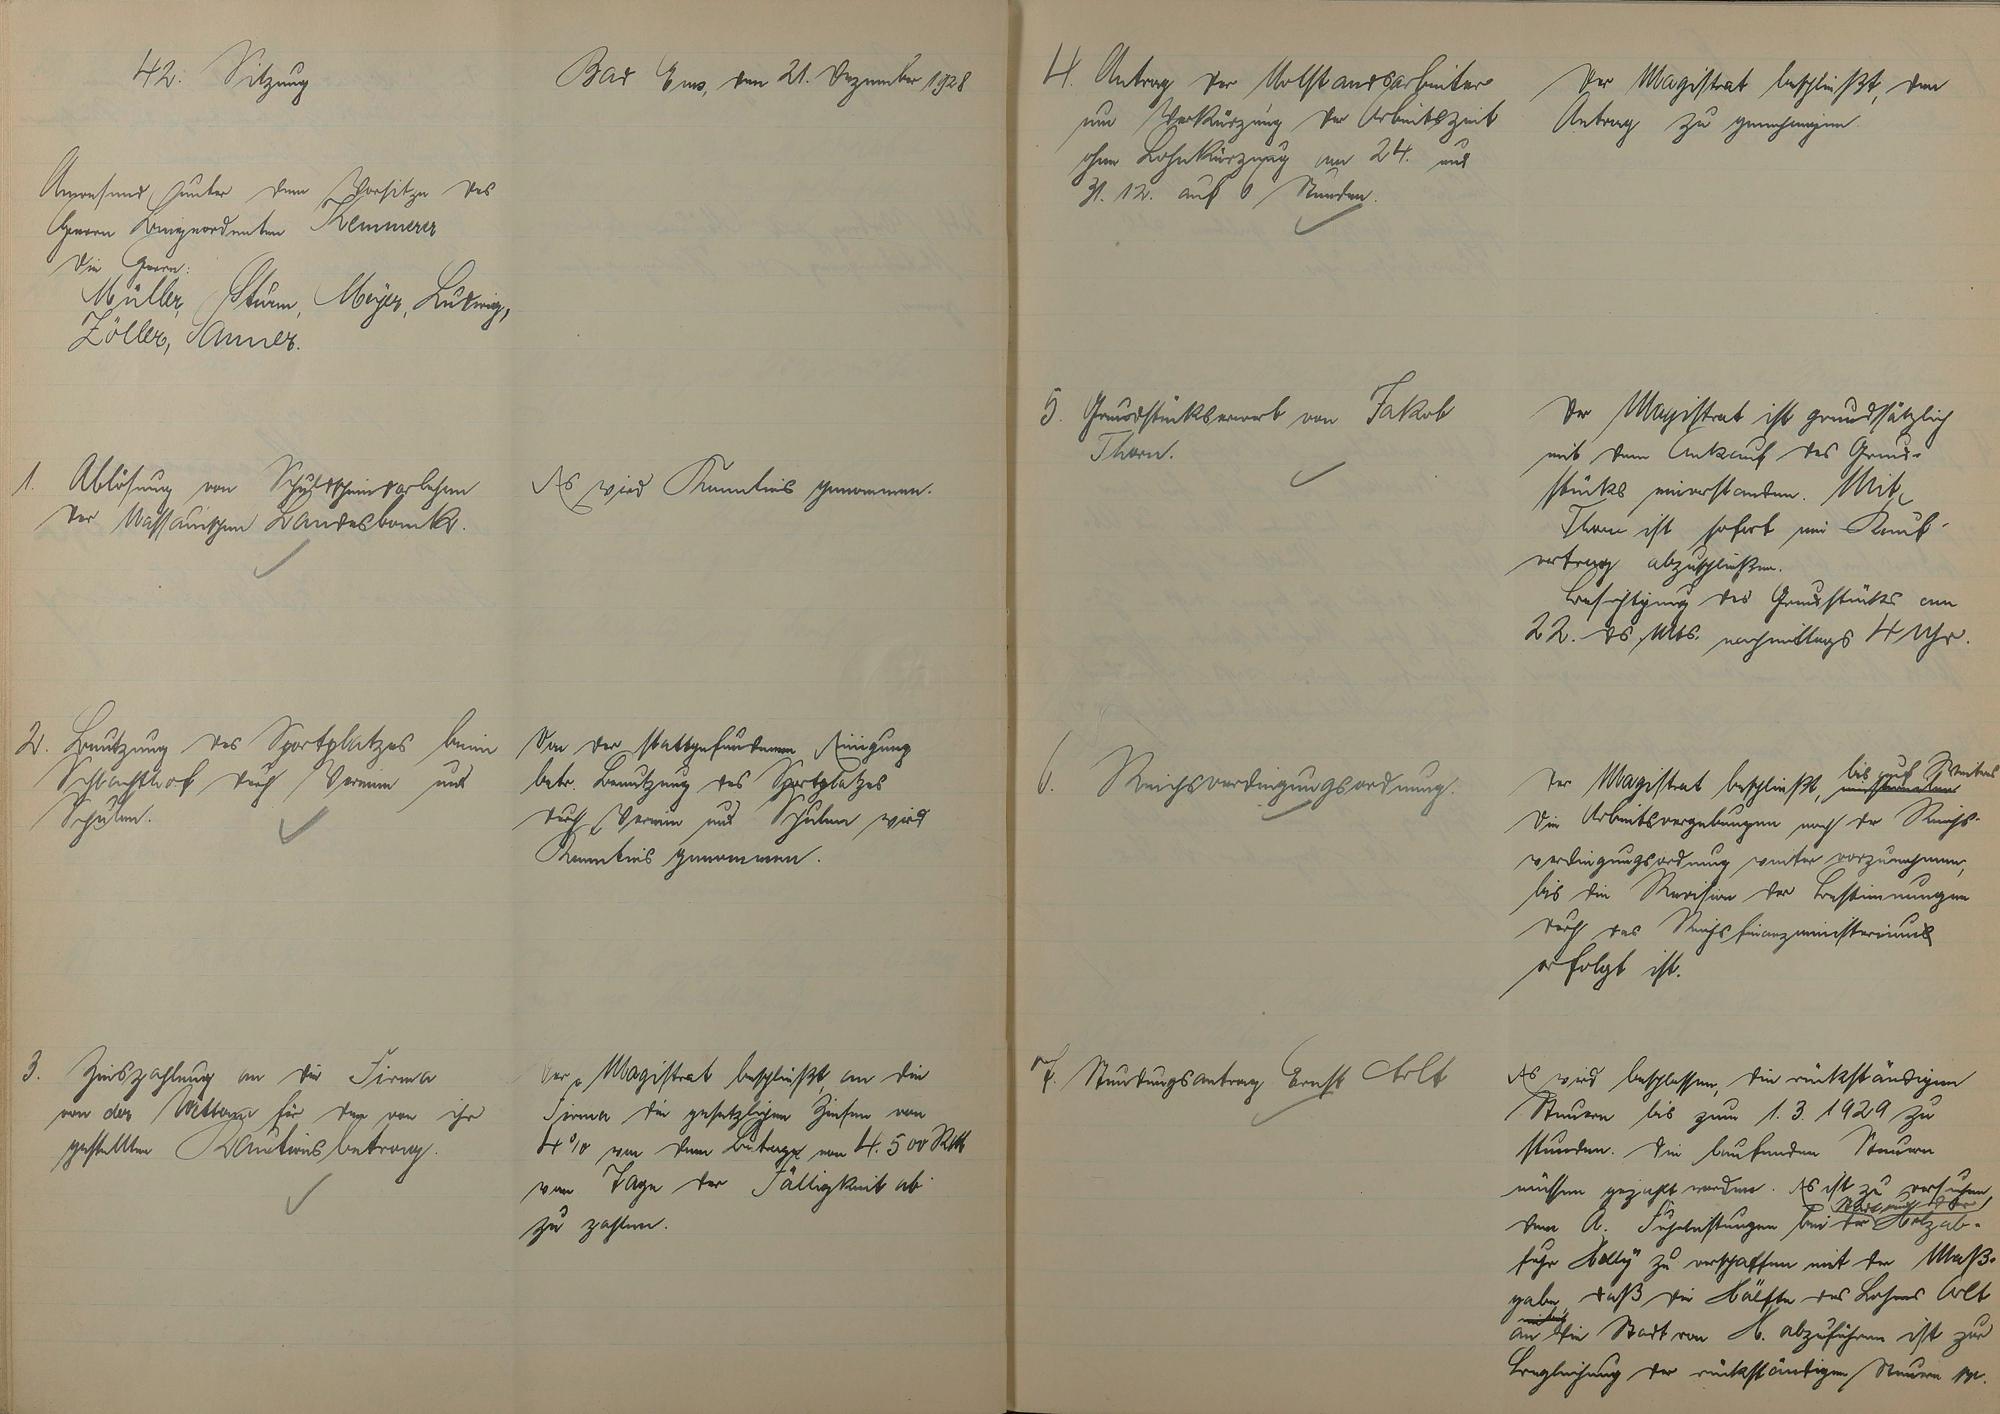 42. Sitzung
Bad Ems, den 21. Dezember 1928
Anwesend unter dem Vorsitze des
Herrn Beigeordneten Kemmerer
die Herrn:
Müller, Sturm, Meyer, Ludwig,
Zöller, Sanner.
1. Ablösung von Schuldscheindarlehen
der Nassauischen Landesbank.
Es wird Kenntnis genommen.
2. Benutzung des Sportplatzes beim
Schlachthof durch Vereine und
Schulen.
Von der stattgefundenen Einigung
betr. Benutzung des Sportplatzes
durch Vereine und Schulen wird
Kenntnis genommen.
3. Zinszahlung an die Firma
von der für den von ihr
gestellten Kautionsbetrag.
Der Magistrat beschließt an die
Firma die gesetzlichen Zinsen von
4% von dem Betrage von 4.500 RM
vom Tage der Fälligkeit ab
zu zahlen.
4. Antrag der Notstandsarbeiter
um Verkürzung der Arbeitszeit
ohne Lohnkürzung am 24. und
31. 12. auf 6 Stunden.
Der Magistrat beschließt, den
Antrag zu genehmigen.
5. Grundstückserwerb von Jakob
Thorn.
Der Magistrat ist grundsätzlich
mit dem Ankauf des Grund-
stücks einverstanden. Mit
Thorn ist sofort ein Kauf-
vertrag abzuschließen.
Besichtigung des Grundstücks am
22. ds. Mts. nachmittags 4 Uhr.
6. Reichsverdingungsordnung.
Der Magistrat beschließt, bis auf Weiteres
die Arbeitsvergebungen nach der Reichs-
verdingungsordnung weiter vorzunehmen,
bis die Revision der Bestimmungen
durch das Reichsfinanzministerium
erfolgt ist.
7. Stundungsantrag Ernst Arlt
Es wird beschlossen, die rückständigen
Steuern bis zum 1. 3. 1929 zu
stunden. Die laufenden Steuern
müssen gezahlt werden. Es ist zu versuchen,
dem A. Fuhrleistungen bei der Holzab-
fuhr zu verschaffen mit der Maß-
gabe, daß die Hälfte des Lohnes Arlt
an die Stadt von H. abzuführen ist zur
Begleichung der rückständigen Steuern pp.